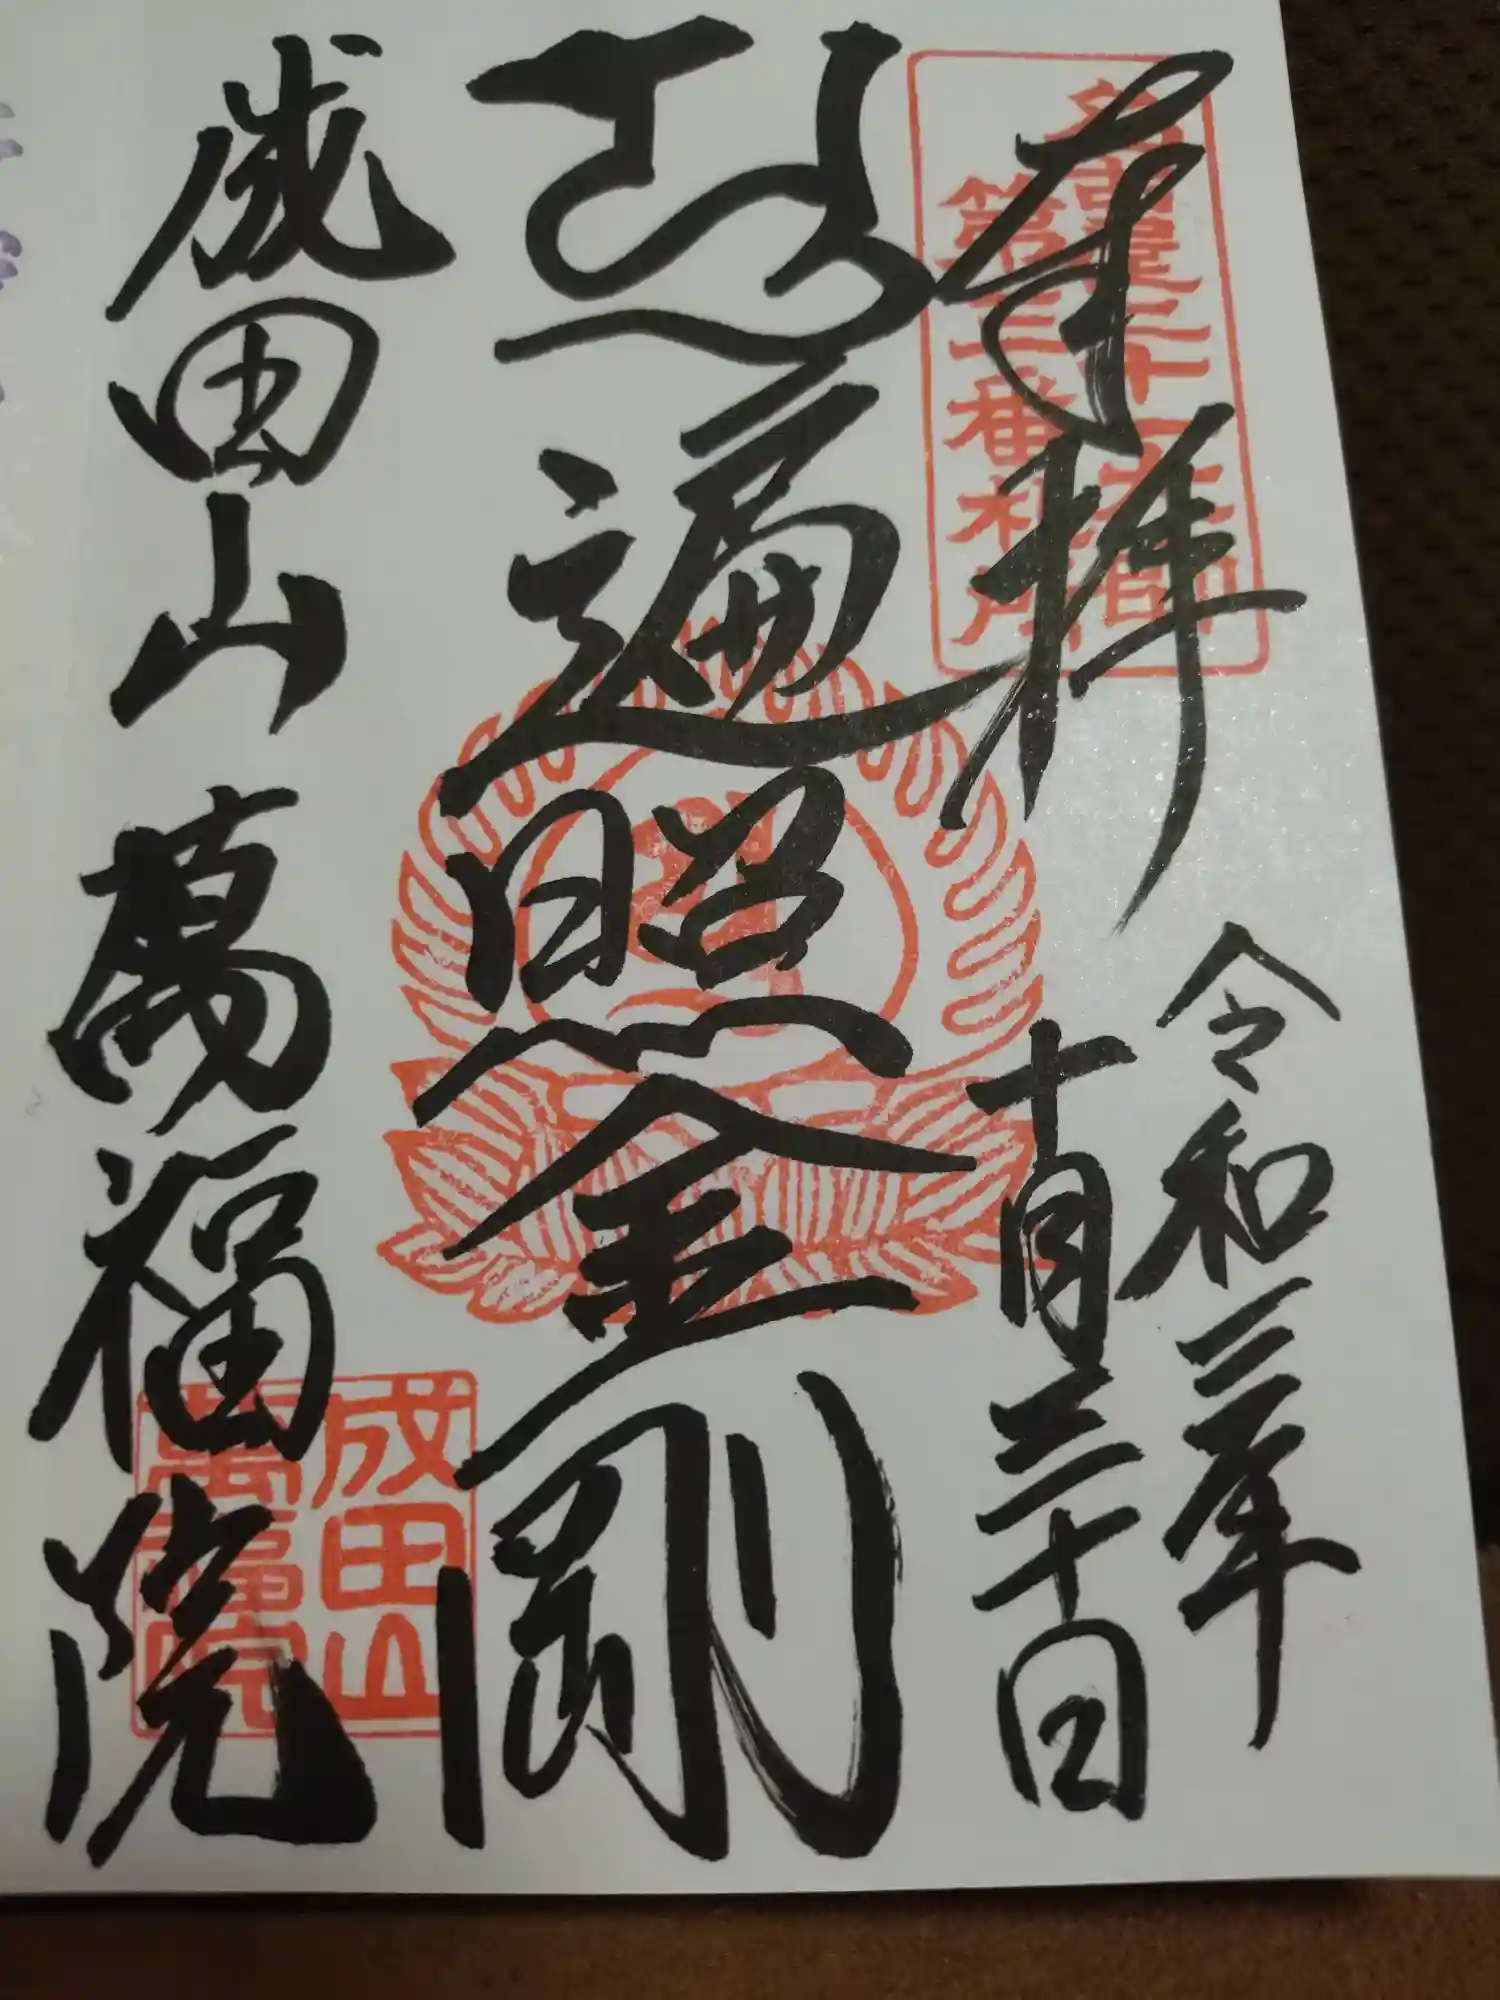 奉拝
名古屋二十一大師
第三番札所
令和二年
十月三十日
遍照金剛
成田山 萬福院
成田山
萬福院